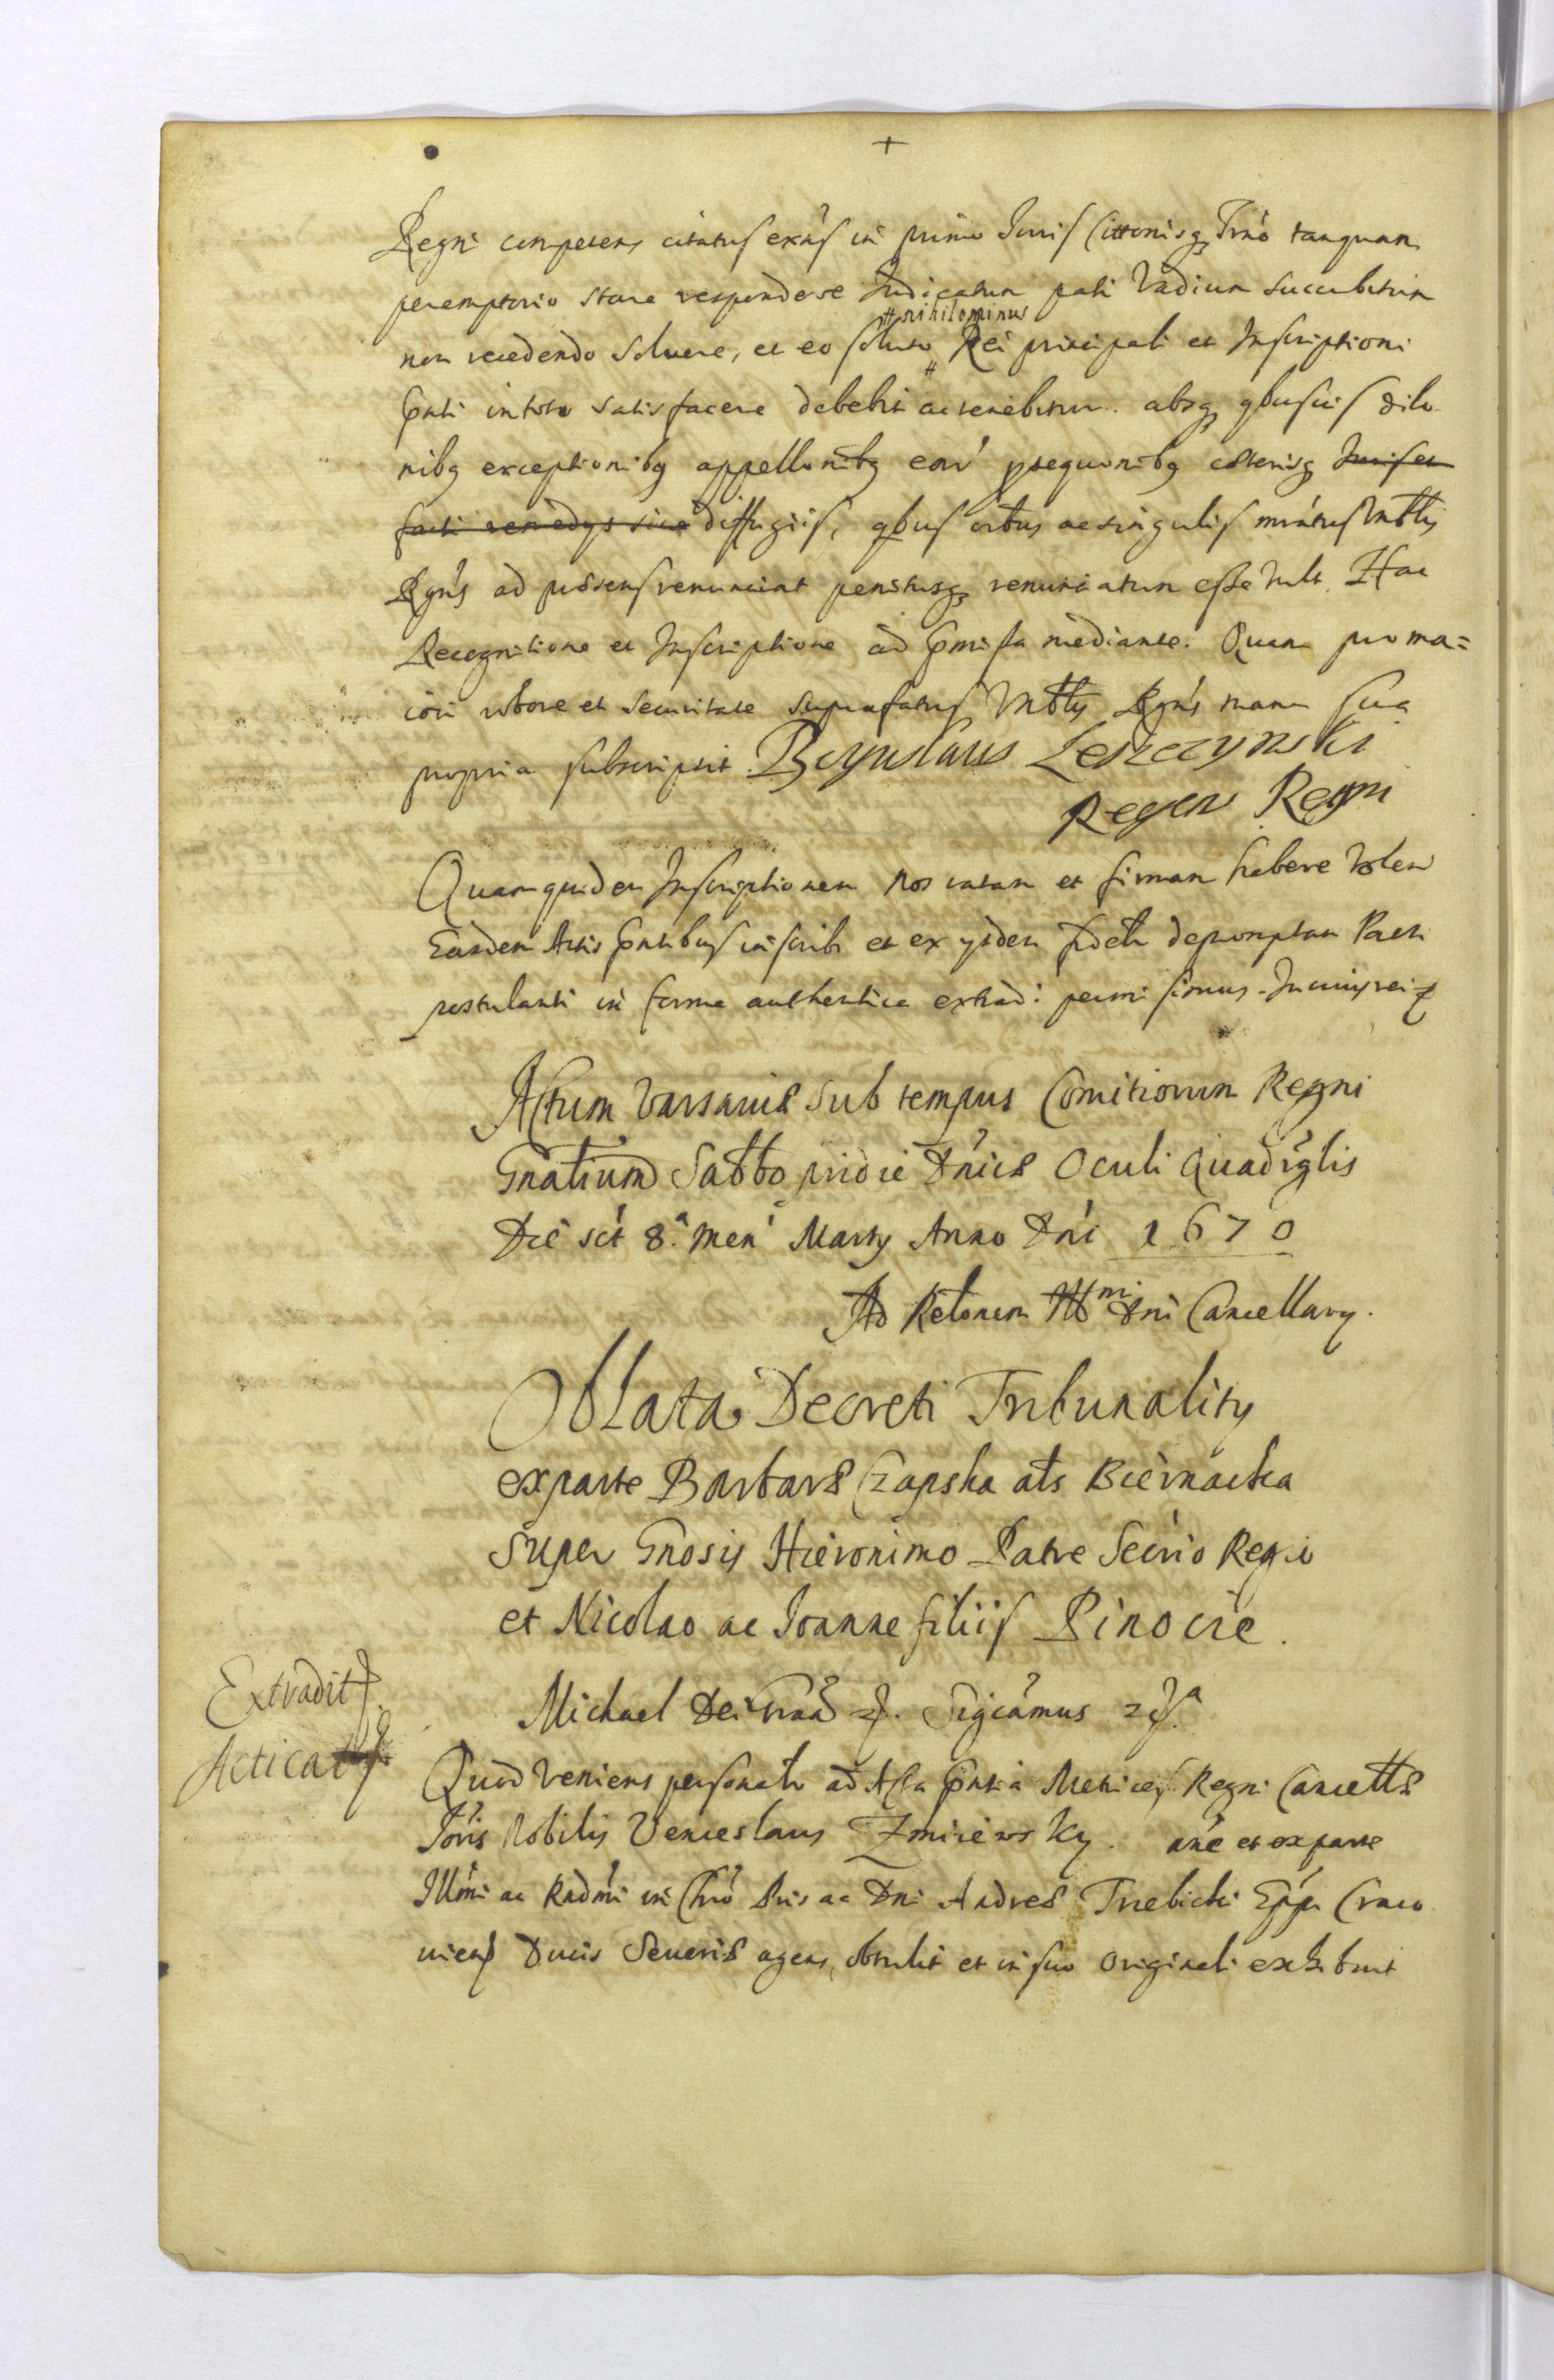 +
Regni competens citatus exñs in primo Juris Cittonisq Trno tanquam
peremptorio stare respondere Judicatum pati Vadium succubitum
# nihilominus
non recedendo soluere, et eo soluto # Rei principali et Inscriptioni
pnti in toto satisfacere debebit ac tenebitur. absq qbusuis dilo
nibq exceptionibq appellonibq eorũ psequonibq cæterisq Juris et
facti remedys siue diffugiis, qbus oibus ac singulis Mtblis
Rgñs ad præsens renunciat penitusq renunciatum esse vult. Hac
Recognitione et Inscriptione ad pmissa mediante. Quam pro ma=
iori robore et securitate suprafatus Mtblis Rgñs manu sua
propria subscripsit. Boguslaus Leszczynski
Regens Regni
Quam quidem Inscriptionem nos ratam et firmam habere volen
Eandem Actis pntibus inscribi et ex ysdem fidetr depromptam Parti
postulanti in forma authentica extradi permisimus. In cuius rei
Actum Varsauiæ sub tempus Comitiorum Regni
Gnalium Sabbo pridie Dnicæ Oculi Quadrglis
Die sct 8.a Men Marty Anno Dni 1670
Ad Relonem Illmi Dni Cancellary.
Oblata Decreti Tribunalitij
ex parte Barbaræ Czapska als Biernacka
super Gnosis Hieronimo Patre Secrio Regio
et Nicolao ac Joanne filiis Pinocie.
Extradit
Michael Dei Graa. Sigcamus
Acticat
Quod veniens personalr ad Acta pntia Metrices Regni Cancellæ
Joris Nobilis Venceslaus Zmiiewsky. nne et ex parte
Illmi ac Rndmi in Chro Pris ac Dni Andreæ Trzebicki Eppi Craco
uiens Ducis Seueriæ agens, obtulit et in suo originali exhibuit